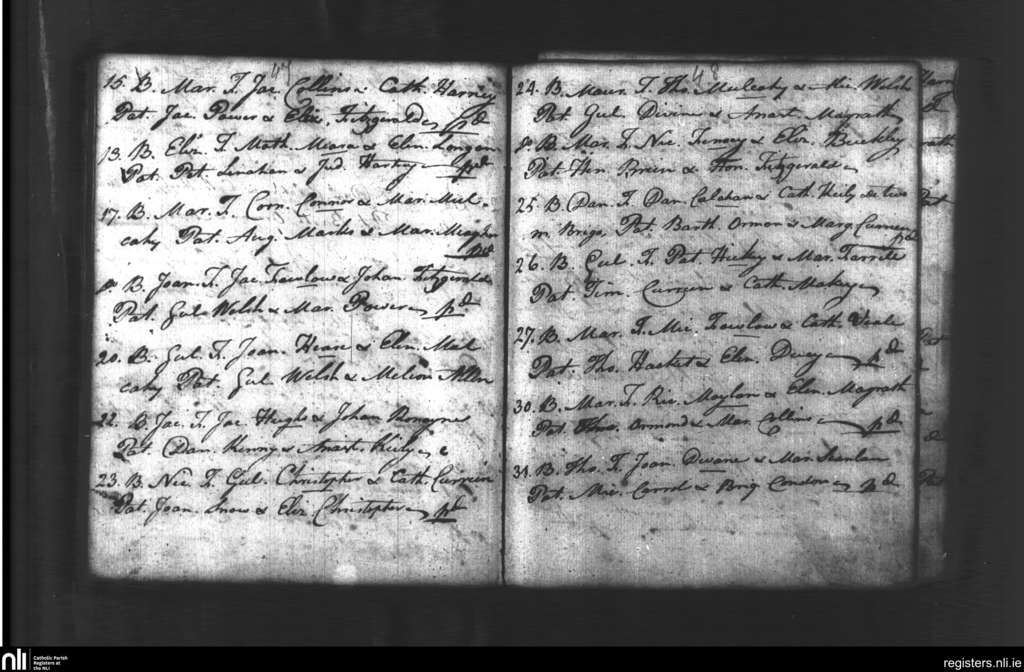 47
15. B. Mar. F. Jac. Collins & Cath. Harney
Pat. Jac. Power & Eliz. Fitzgerald pd
13. B. Eliz. F. Math. Meara & Elin. Longan
Pat. Pat. Linahan & Jud. Hartny pd
17. B. Mar. F. Corn. Connor & Mar. Mul-
cahy Pat. Aug. Marks & Mar. Meagher
pd
B. Joan. F. Jac. Fowlow & Johan. Fitzgerald
Pat. Gul. Welsh & Mar. Power pd
20. B. Gul. F. Joan. Hearn & Elin. Mul
cahy Pat. Gul. Welsh & Allen
22. B. Jac. F. Jac. Hugh & Johan.
Pat. Dan. Kenny & Anast. Kiely
23. B. Nic. F. Gul. Christopher & Cath. Curreen
Pat. Joan. Snow & Eliz. Christopher pd
48
24. B. Maur. F. Tho. Mulcahy & Mic. Welsh
Pat. Gul. Divine & Anast. Magrath
B. Mar. F. Nic. & Eliz. Buckley
Pat. Hen. Breen & Hon. Fitzgerald
25. B. Dan. F. Dan. Calahan & Cath. Kiely
m. Brigs. Pat. Barth. Ormon & Marg. Curreen
pd
26. B. Gul. F. Pat. Hickey & Mar.
Pat. Tim. Curreen & Cath. Makey
27. B. Mar. F. Mic. Fowlow & Cath. Veale
Pat. Tho. Hacket & Elin. pd
30. B. Mar. F. Ric. Moylan & Elin. Magrath
Pat. Ormond & Mar. Collins pd
31. B. Tho. F. Joan. Dwane & Mar. Scanlan
Pat. Mic. Corrol & Brig. Condon pd
nli Catholic Parish
Registers at
the NLI
registers.nli.ie